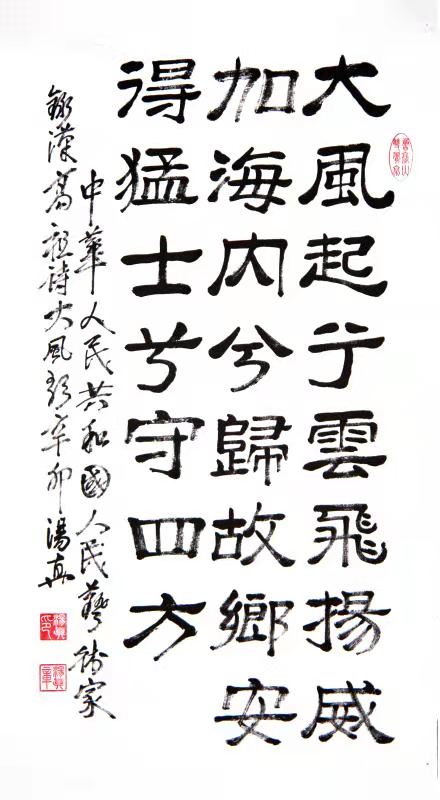 大風起兮雲飛揚威
加海内兮歸故鄉安
得猛士兮守四方
中華人民共和國人民藝術家
錄漢高祖詩大風歌辛卯湯真